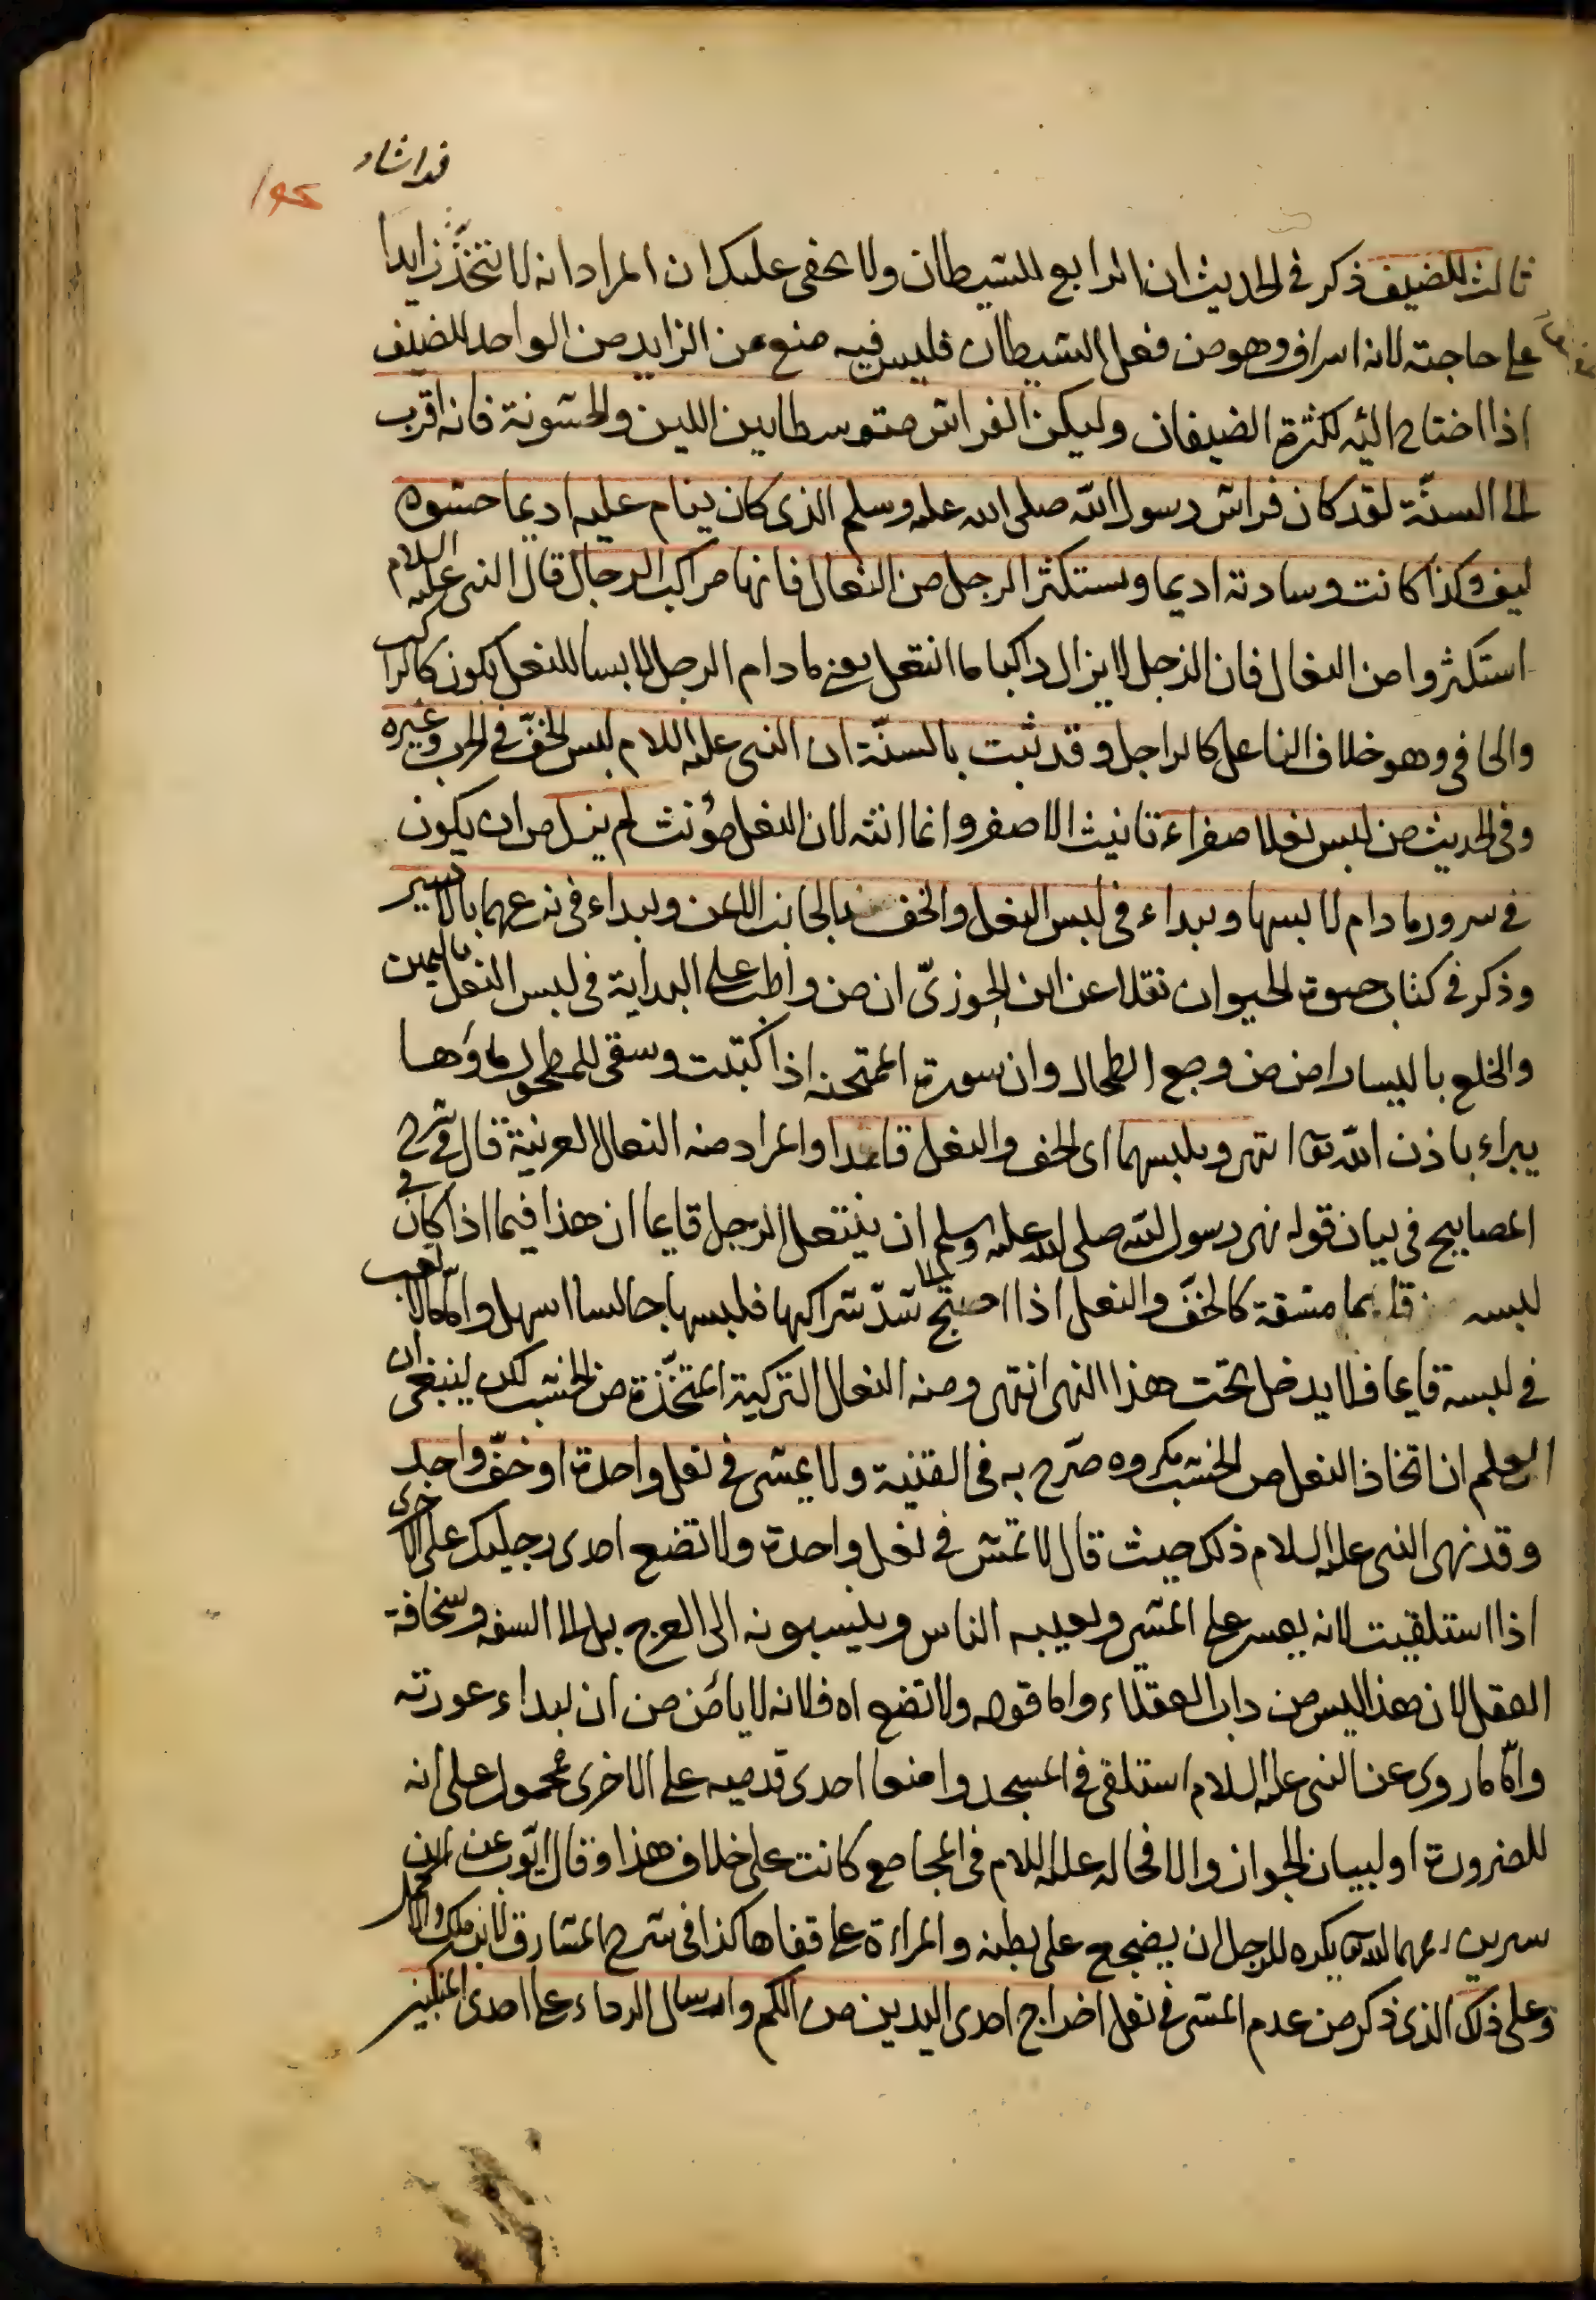 ثالث للضيف ذكر في الحديث ان الرابع للشيطان ولا يخفى عليك ان المراد انه لا تتخذ زايدا
على حاجته لانه اسراف وهو من فعل الشيطان فليس فيه منع من الزايد من الواحد للضيف
اذا احتاج اليه لكثرة الضيفان وليكن الفراش متوسطا بين اللين والخشونة فانه اقرب
الى السنة لقد كان فراش رسول الله صلى الله عليه وسلم الذى كان ينام عليه اديما حشوه
ليف وكذا كانت وسادته اديما ويستكثر الرجل من النعال فانها مراكب الرجال قال النبى عليه السلام
استكثروا من النعال فان الرجل لا يزال راكبا ما انتعل يعنى ما دام الرجل لابسا للنعل يكون كالراكب
والحافى وهو خلاف الناعل كالراجل وقد ثبت بالسنة ان النبى عليه السلام لبس الخف في الحرب وغيره
وفى الحديث من لبس نعلا صفراء تانيث الاصفر وانما انثه لان النعل مؤنث لم يزل من ان يكون
في سرور ما دام لابسها ويبداء في لبس النعل والخف بالجانب الايمن ويبداء فى نزعهما بالايسر
وذكر في كتاب حيوة الحيوان نقلا عن ابن الجوزى ان من واظب على البداية في لبس النعل باليمين
والخلع باليسار امن من وجع الطحال وان سورة الممتحنه اذا كتبت وسقى للمطحول ماؤها
يبراء باذن الله تع انتهى ويلبسهما اى الخف والنعل قاعدا والمراد منه النعال العربية قال في شرح
المصابيح في بيان قوله نهى رسول الله صلى الله عليه وسلم ان ينتعل الرجل قايما ان هذا فيما اذا كان في
لبسه قايما مشقة كالخف والنعل اذا احتيج الى شد شراكها فلبسها جالسا اسهل واما ما لا تعب
في لبسه قايما فلا يدخل تحت هذا النهى انتهى ومنه النعال التركية المتخذة من الخشب لكن ينبغى ان
يعلم ان اتخاذ النعل من الخشب مكروه صرح به فى القنية ولا يمشى في نعل واحدة او خف واحد
وقد نهى النبى عليه السلام ذلك حيث قال لا تمش في نعل واحدة ولا تضع احدى رجليك على الاخرى
اذا استلقيت لانه يعسر على المشى ويعيبه الناس وينسبونه الى العرج بل الى السفه وسخافة
العقل لان هذا ليس من داب العقلاء واما قوله ولا تضع اه فلانه لا يامن من ان يبداء عورته
واما ما روى عن النبى عليه السلام استلقى في المسجد واضعا احدى قدميه على الاخرى فمحمول على انه
للضرورة او لبيان الجواز والا فحاله عليه السلام فى المجامع كانت على خلاف هذا وقال ايوب عن ابن
سرين رحمهما الله تع يكره للرجل ان يضجع على بطنه والمراءة على قفاها كذا فى شرح المشارق لابن ملك
وعلى ذلك الذى ذكر من عدم المشى في نعل اخراج احدى اليدين من الكم وارسال الرداء على احدى المنكبين